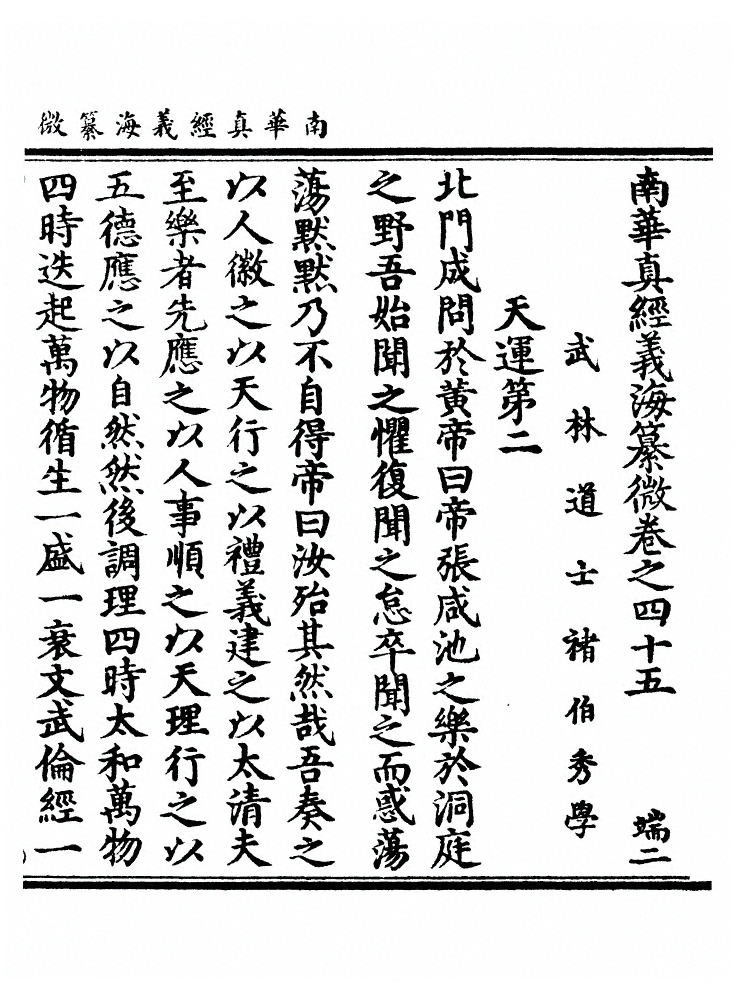 南華真經義海纂微
南華真經義海纂微卷之四十五 端二
武林道士褚伯秀學
天運第二
北門成問於黃帝曰帝張咸池之樂於洞庭
之野吾始聞之懼復聞之怠卒聞之而惑蕩
蕩默默乃不自得帝曰汝殆其然哉吾奏之
以人徽之以天行之以禮義建之以太清夫
至樂者先應之以人事順之以天理行之以
五德應之以自然然後調理四時太和萬物
四時迭起萬物循生一盛一衰文武倫經一